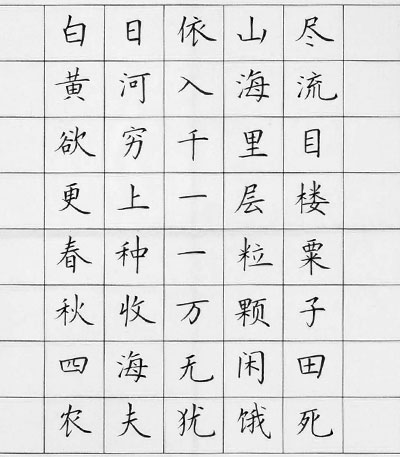 白日依山尽
黄河入海流
欲穷千里目
更上一层楼
春种一粒粟
秋收万颗子
四海无闲田
农夫犹饿死